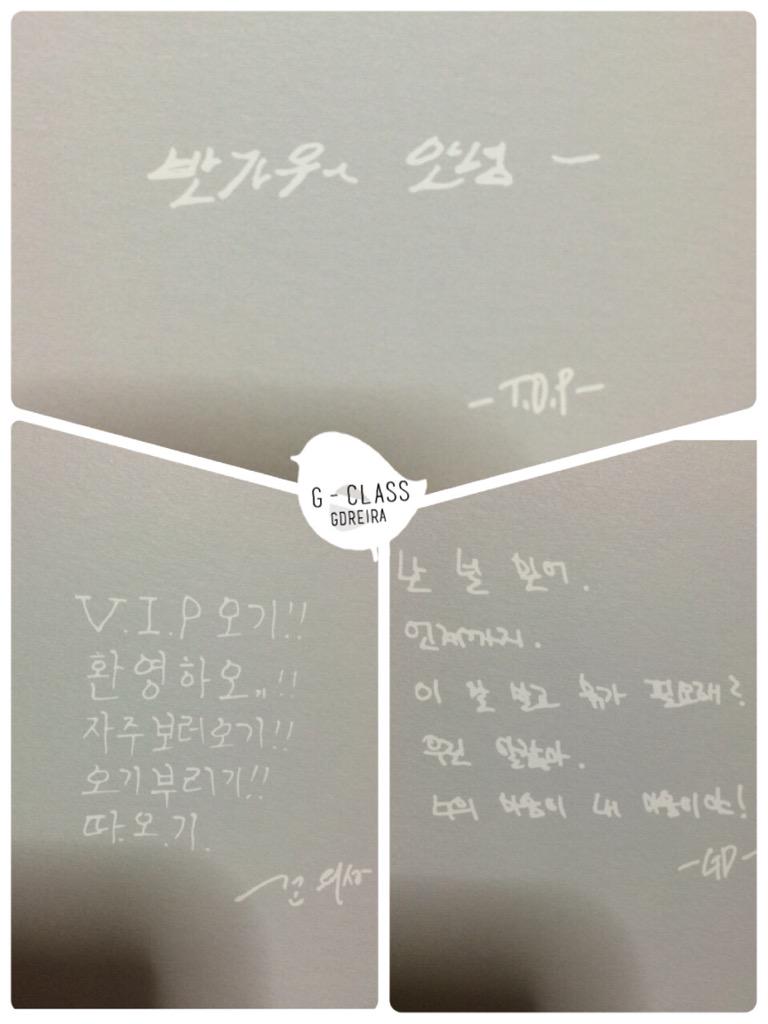 반가우ㅅ 안녕 —
-T.O.P-
G - CLASS
GDREIRA
V.I.P 오기!!
환영하오,,!!
자주보러오기!!
오기부리기!!
따.오.기.
난 널 믿어.
언제까지.
이 말 말고 뭐가 필요해?
우린 알잖아.
너의 마음이 내 마음이야!
-GD-